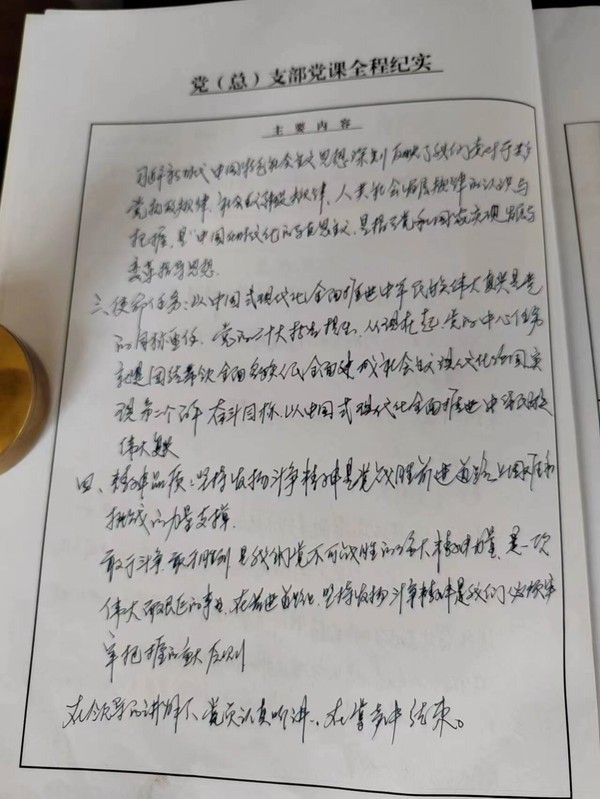 党（总）支部党课全程纪实
主要内容
习近平新时代中国特色社会主义思想深刻反映了我们党对于共
党执政规律、社会主义建设规律、人类社会发展规律的认识与
把握，是中国 的马克思主义，是指引党和国家实现
指导思想.
三、使命任务：以中国式现代化全面推进中华民族伟大复兴是党
的目标重任. 党的二十大报告提出，从现在起，党的中心任务
就是团结带领全国各族人民全面建成社会主义现代化强国、实
现第二个百年奋斗目标，以中国式现代化全面推进中华民族
伟大复兴
四、精神品质：坚持发扬斗争精神是党战胜前进道路上困难和
挑战的力量支撑.
敢于斗争、敢于胜利是我们党不可战胜的强大精神力量，是一项
伟大而艰巨的事业，在前进道路上，坚持发扬斗争精神是我们必须牢
牢把握的重大原则
在领导的讲解下，党员认真听讲，在掌声中结束。